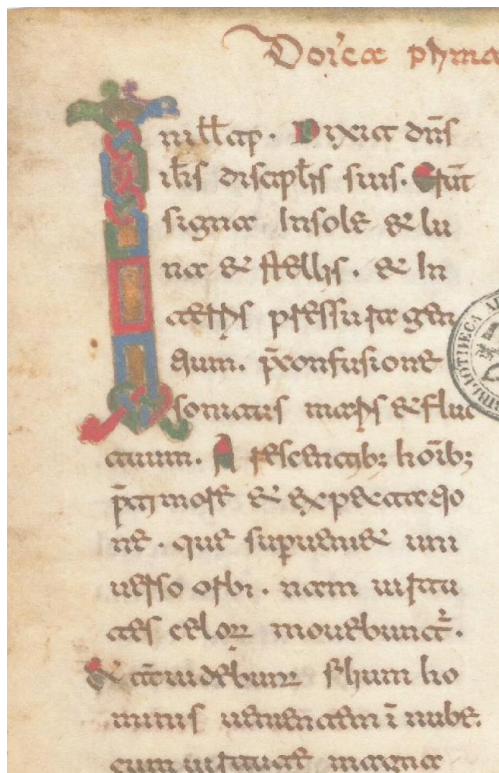 Dom̄ca prima
In ill̄ tp̄. Dixit dn̄s
ih̄s discipl̄is suis. Erūt
signa In sole & lu
na & stellis. & In
terris pressura gen
tium. p̄ confusione
sonitus maris & fluc
tuum. Arescentib; hōib;
p̄ timore & expectatio
ne. que supueniet uni
uerso orbi. nam uirtu
tes celoꝝ mouebunt̄.
Et tc̄ uidebunt filium ho
minis uenientem ī nube.
cum uirtute magna
BIBLIOTHECA